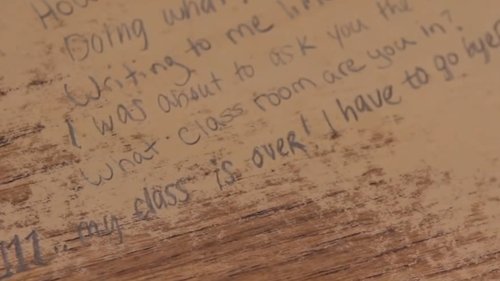 Doing what
Writing to me
I was about to ask you the
What class room are you in?
my class is over! I have to go byee